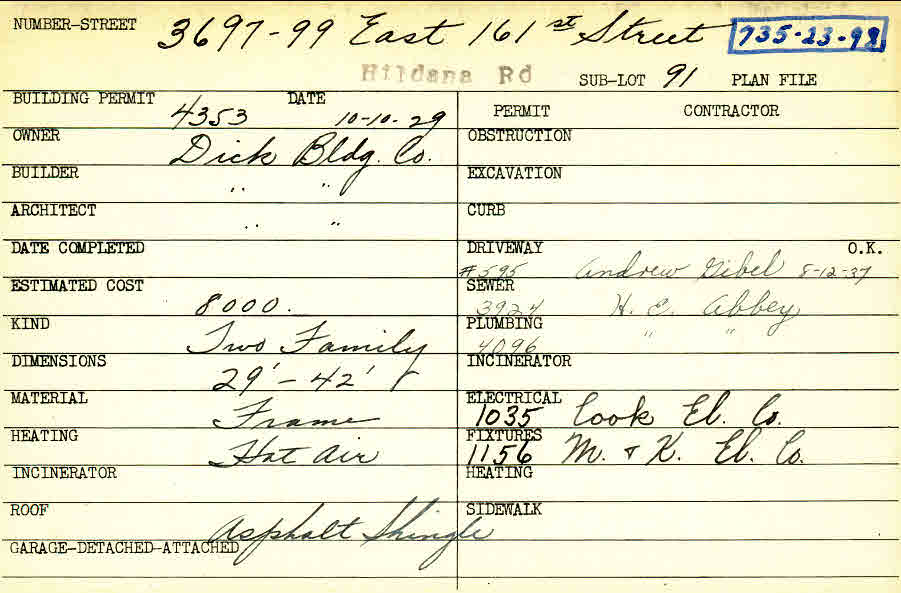 NUMBER-STREET 3697-99 East 161st Street 735-23-98
Hildana Rd SUB-LOT 91 PLAN FILE
BUILDING PERMIT 4353 DATE 10-10-29 PERMIT CONTRACTOR
OWNER Dick Bldg. Co. OBSTRUCTION
BUILDER " " EXCAVATION
ARCHITECT " " CURB
DATE COMPLETED DRIVEWAY O.K.
#595 Andrew Gibel 8-12-37
ESTIMATED COST 8000. SEWER 3924 H. E. Abbey
KIND Two Family PLUMBING 4096 " "
DIMENSIONS 29' - 42' INCINERATOR
MATERIAL Frame ELECTRICAL 1035 Cook El. Co.
HEATING Hot Air FIXTURES 1156 M. & K. El. Co.
INCINERATOR HEATING
ROOF Asphalt Shingle SIDEWALK
GARAGE-DETACHED-ATTACHED